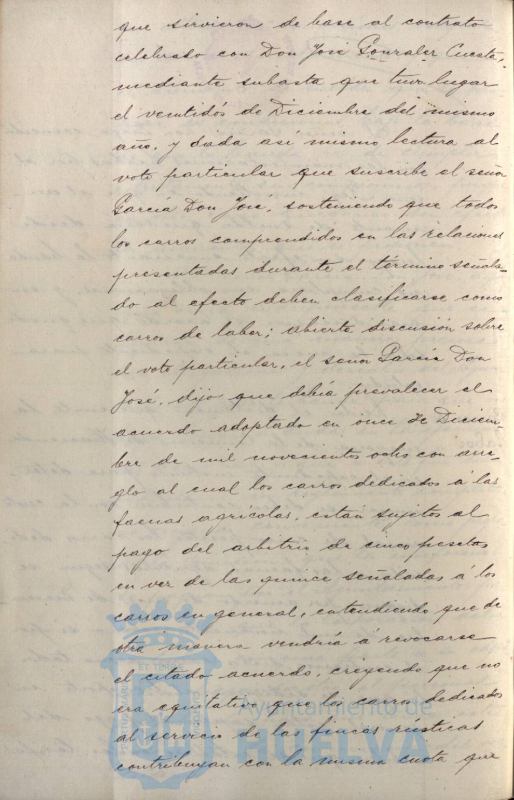 que sirvieron de base al contrato
celebrado con Don José Gonzalez Cuesta,
mediante subasta que tuvo lugar
el ventidós de Diciembre del mismo
año, y dada así mismo lectura al
voto particular que suscribe el señor
García Don José, sosteniendo que todos
los carros comprendidos en las relaciones
presentadas durante el término señala-
do al efecto deben clasificarse como
carros de labor; abierta discusión sobre
el voto particular, el señor García Don
José, dijo que debía prevalecer el
acuerdo adoptado en once de Diciem-
bre de mil novecientos ocho con arre-
glo al cual los carros dedicados á las
faenas agrícolas, están sujetos al
pago del arbitrio de cinco pesetas
en vez de las quince señaladas á los
carros en general, entendiendo que de
otra manera vendría á revocarse
el citado acuerdo, creyendo que no
era equitativo que los carros dedicados
al servicio de las fincas rústicas
contribuyan con la misma cuota que
Ayuntamiento de
HUELVA